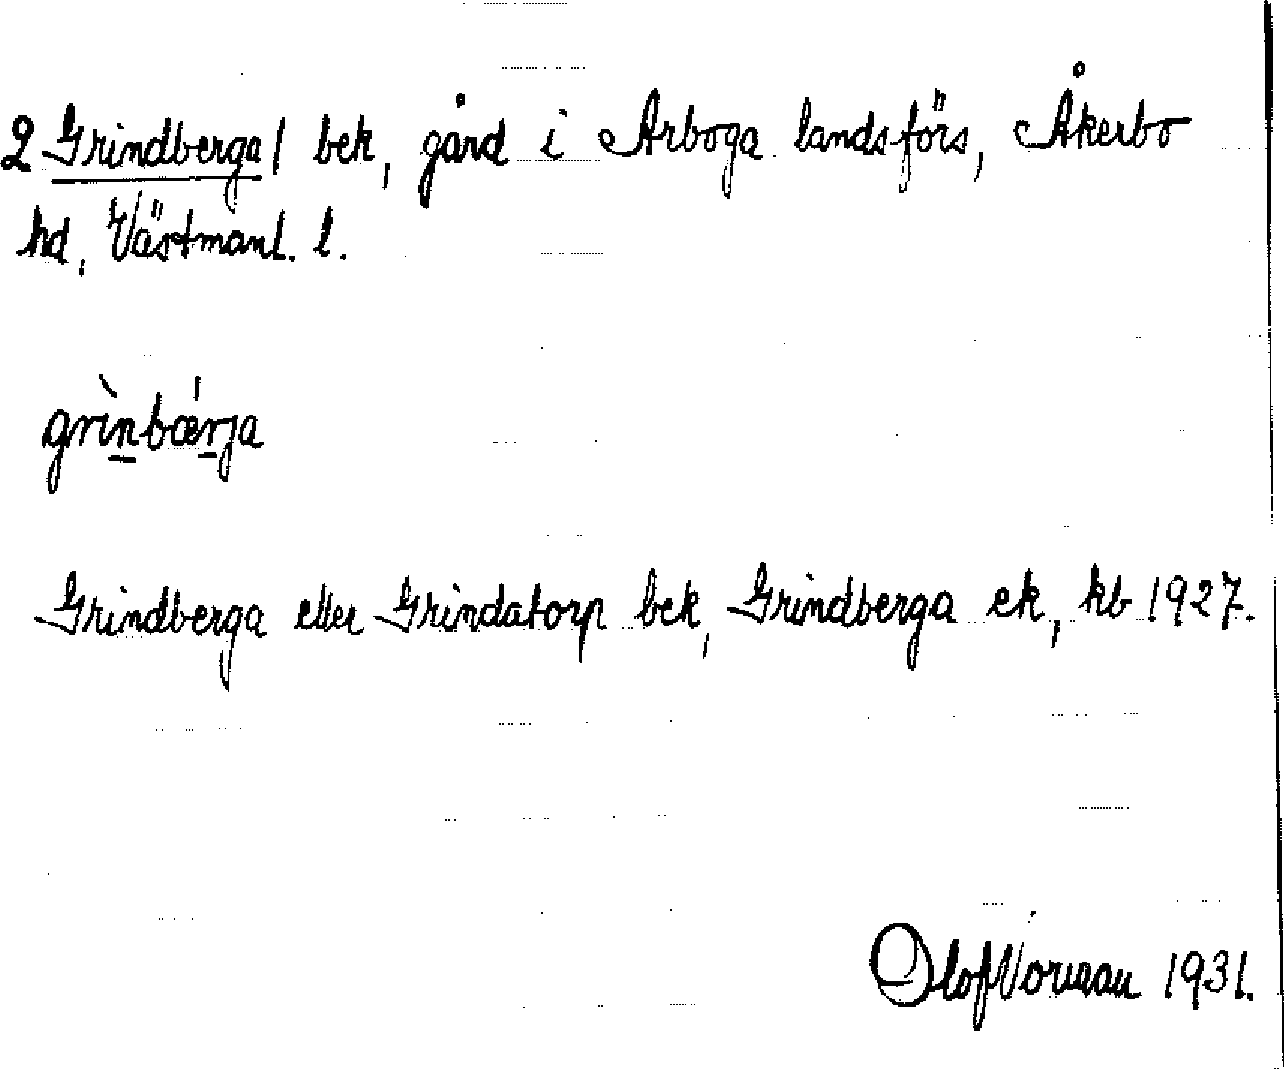 2 Grindberga/ bek, gård i Arboga landsförs, Åkerbo
hd, Västmanl. l.
grìnbǽrja
Grindberga eller Grindatorp bek, Grindberga ek, kb 1927.
Olof 1931.